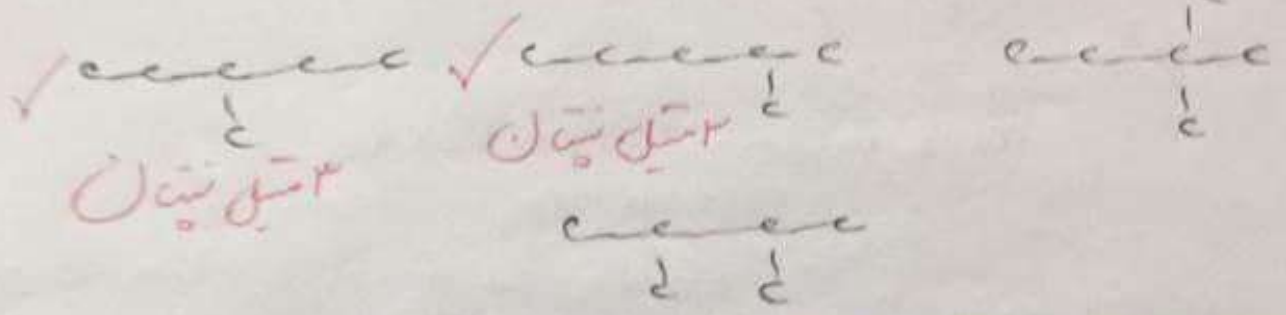 c-c-c-c-c
c
۳ متیل پنتان
c-c-c-c-c
c
۲ متیل پنتان
c-c-c-c
c
c-c-c-c
c c